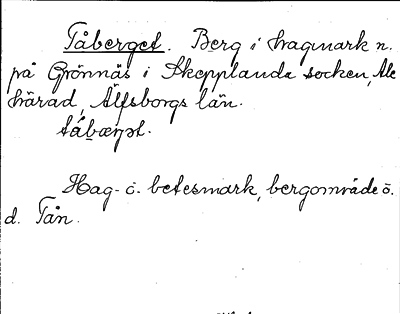 Tåberget. Berg i hagmark n.
på Grönnäs i Skepplanda socken, Ale
härad, Älfsborgs län.
Hag- o. betesmark, bergområde ö.
d. Tån.